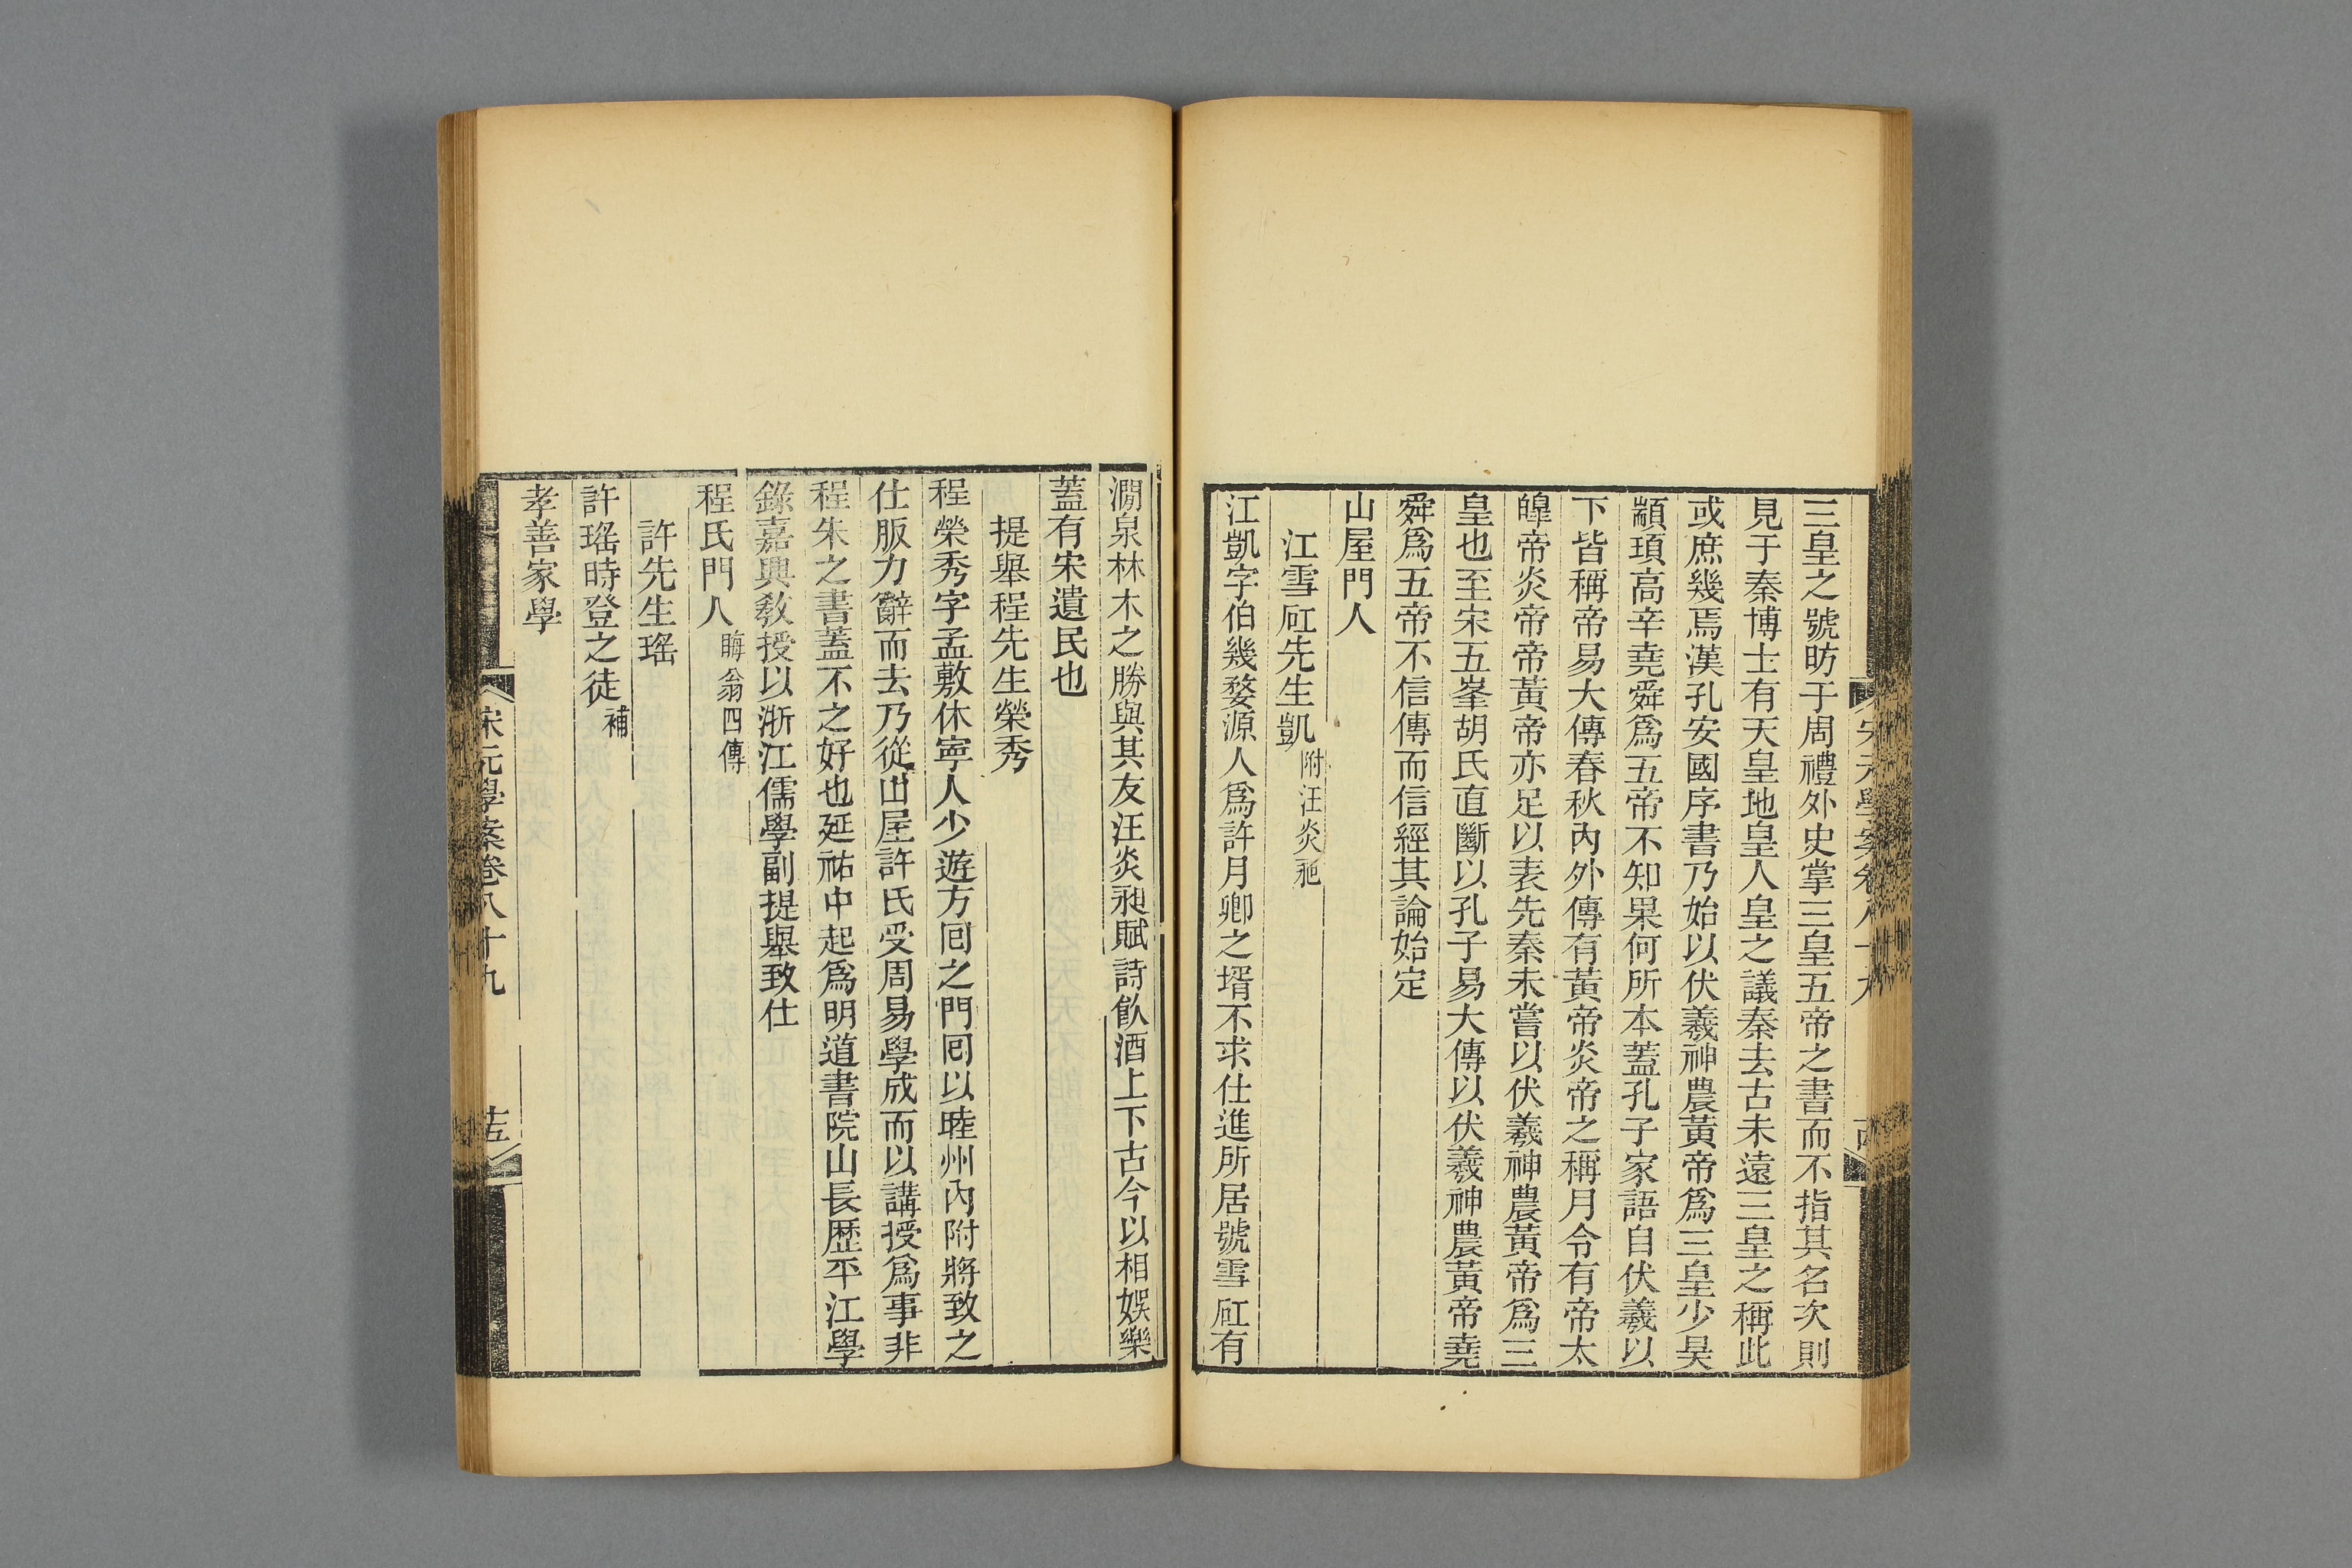 三皇之號昉于周禮外史掌三皇五帝之書而不指其名次則
見于秦博士有天皇地皇人皇之議秦去古未遠三皇之稱此
或庶幾焉漢孔安國序書乃始以伏羲神農黃帝爲三皇少昊
顓頊高辛堯舜爲五帝不知果何所本蓋孔子家語自伏羲以
下皆稱帝易大傳春秋內外傳有黃帝炎帝之稱月令有帝太
皥帝炎帝帝黃帝亦足以表先秦未嘗以伏羲神農黃帝爲三
皇也至宋五峯胡氏直斷以孔子易大傳以伏羲神農黃帝堯
舜爲五帝不信傳而信經其論始定
山屋門人
江雪矼先生凱附汪炎昶
江凱字伯幾婺源人爲許月卿之壻不求仕進所居號雪矼有
澗泉林木之勝與其友汪炎昶賦詩飮酒上下古今以相娛樂
蓋有宋遺民也
提舉程先生榮秀
程榮秀字孟敷休寧人少遊方回之門回以睦州內附將致之
仕服力辭而去乃從山屋許氏受周易學成而以講授爲事非
程朱之書蓋不之好也延祐中起爲明道書院山長歷平江學
錄嘉興敎授以浙江儒學副提舉致仕
程氏門人晦翁四傳
許先生瑤
許瑤時登之徒補
孝善家學
宋元學案卷八十九